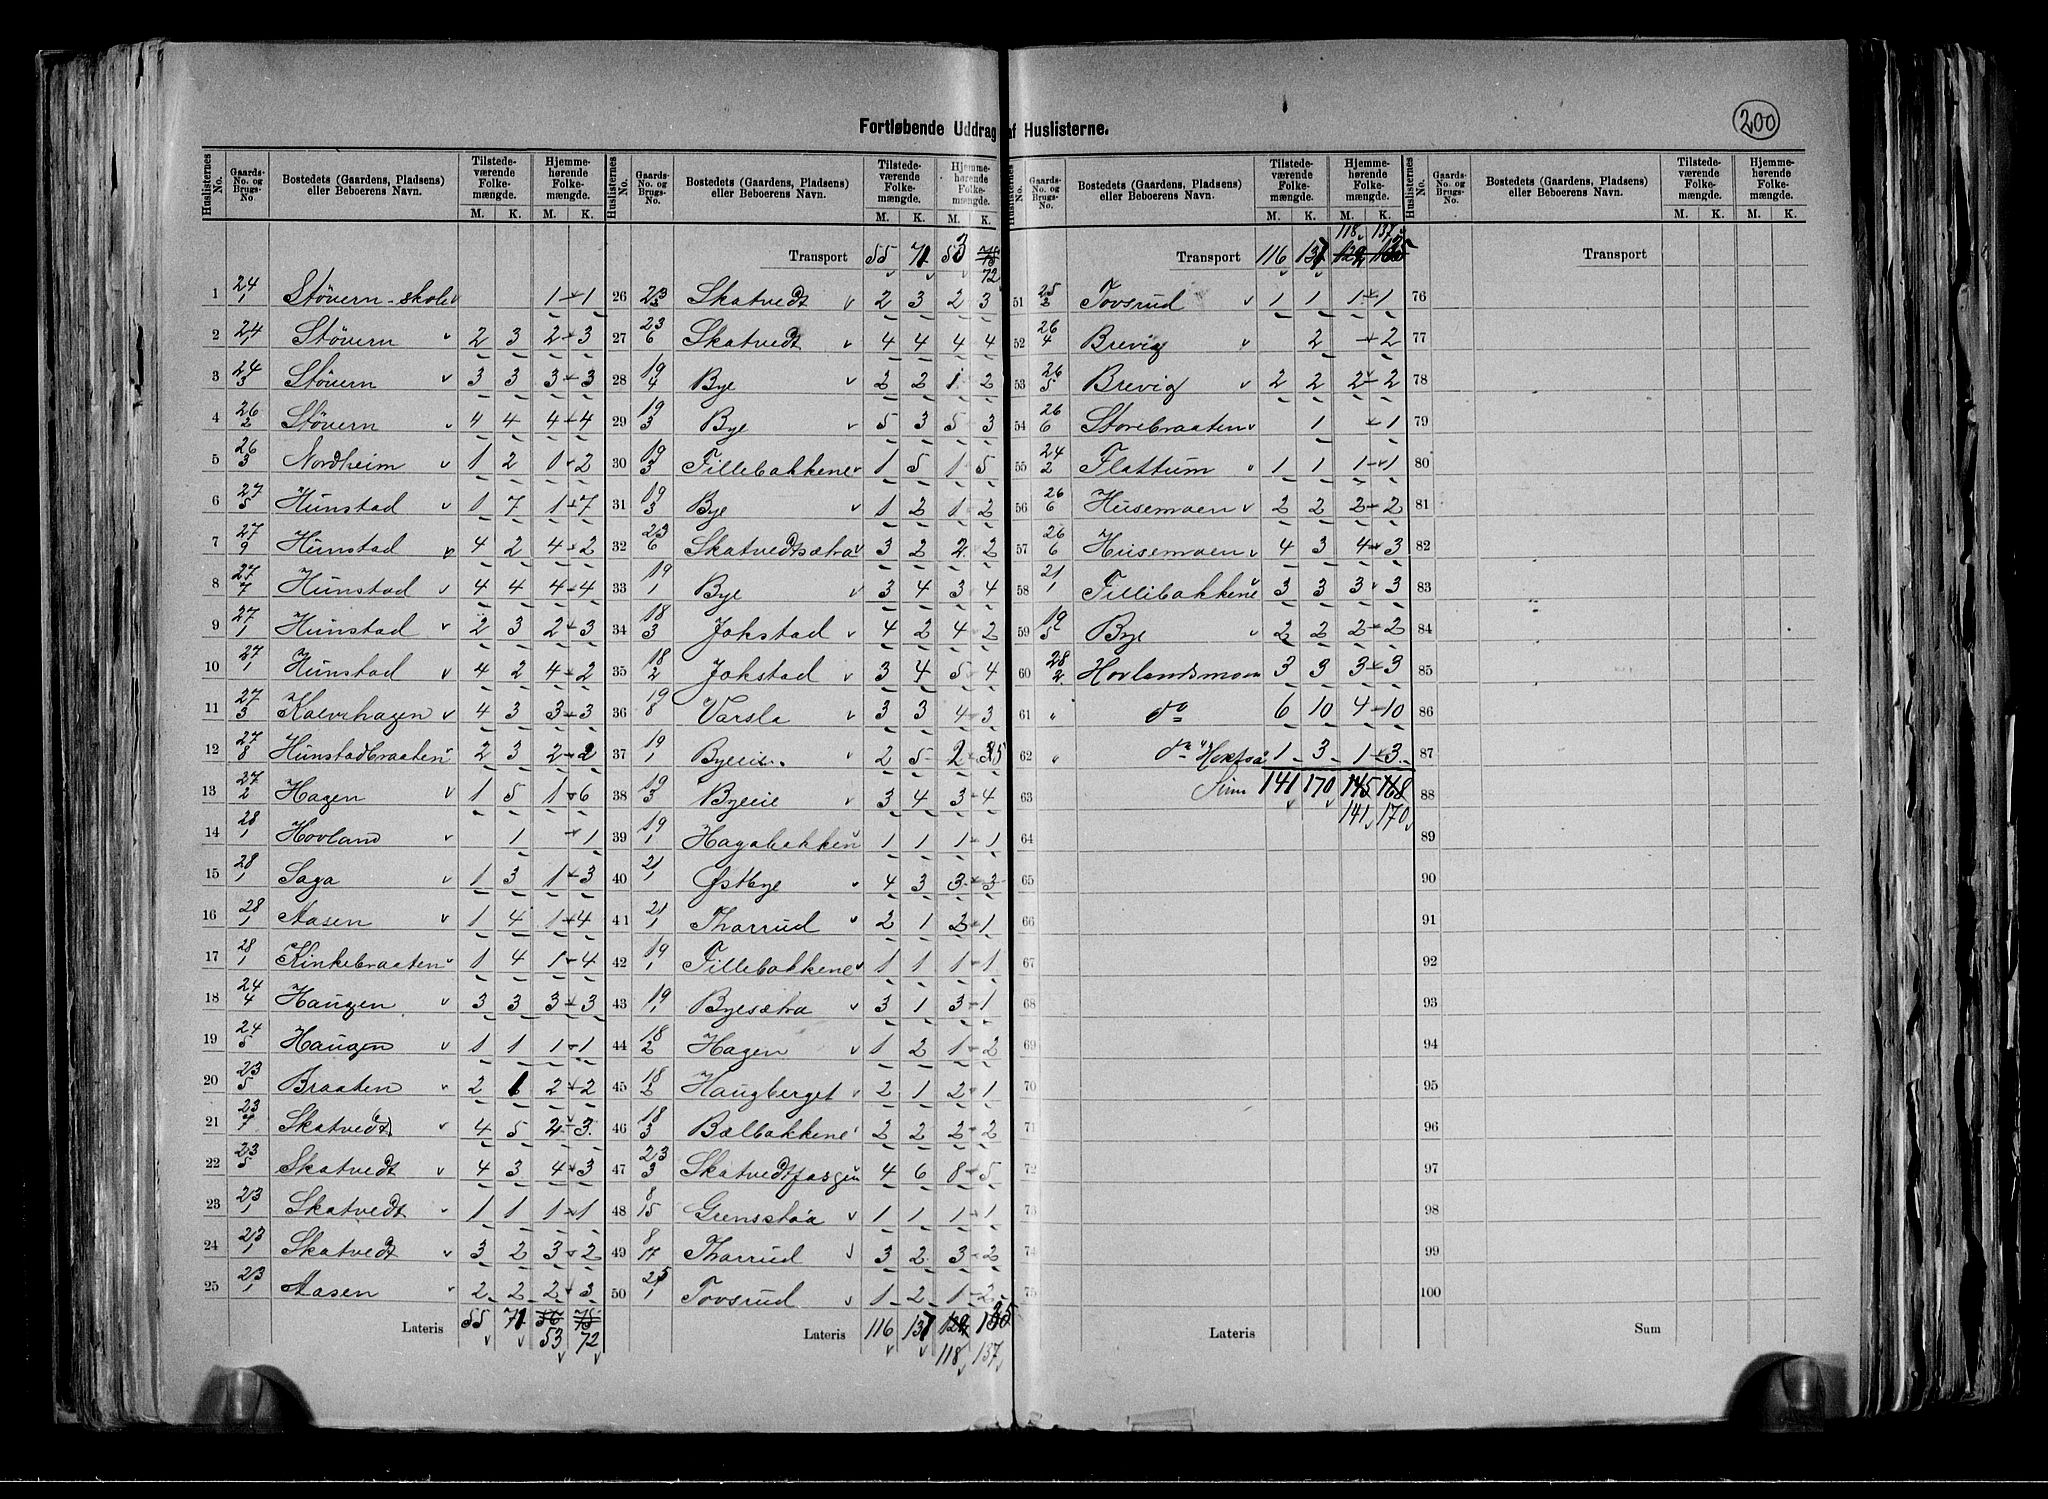 200
Fortløbende Uddrag af Huslisterne.
Huslisternes No. | Gaards-No. og Brugs-No. | Bostedets (Gaardens, Pladsens) eller Beboerens Navn. | Tilstedeværende Folkemængde. M. K. | Hjemmehørende Folkemængde. M. K.
1 24/1 Støvern-skole 1 1
2 24/1 Støvern 2 3 2 3
3 24/3 Støvern 3 3 3 3
4 26/2 Støvern 4 4 4 4
5 26/3 Nordheim 1 2 1 2
6 27/5 Hunstad 1 7 1 7
7 27/9 Hunstad 4 2 4 2
8 27/7 Hunstad 4 4 4 4
9 27/1 Hunstad 2 3 2 3
10 27/1 Hunstad 4 2 4 2
11 27/3 Kalvehagen 4 3 3 3
12 27/8 Hunstadbraaten 2 3 2 2
13 27/2 Hagen 1 5 1 6
14 28/1 Hovland 1 1
15 28/1 Saga 1 3 1 3
16 28/1 Aasen 1 4 1 4
17 28/1 Kinkebraaten 1 4 1 4
18 24/4 Haugen 3 3 3 3
19 24/5 Haugen 1 1 1 1
20 23/5 Braaten 2 1 2 2
21 23/7 Skatvedt 4 5 2 3
22 23/5 Skatvedt 4 3 4 3
23 23/1 Skatvedt 1 1 1 1
24 23/1 Skatvedt 3 2 3 2
25 23/1 Aasen 2 2 2 3
Lateris 55 71 56 75
53 72
Transport 55 71 53 75
72
26 23/3 Skatvedt 2 3 2 3
27 23/6 Skatvedt 4 4 4 4
28 19/4 Bye 2 2 1 2
29 19/3 Bye 5 3 5 3
30 19/3 Tillebakkene 1 5 1 5
31 19/3 Bye 1 2 1 2
32 23/6 Skatvedtsætra 3 2 2 2
33 19/1 Bye 3 4 3 4
34 18/3 Jokstad 4 2 4 2
35 18/2 Jokstad 3 4 5 4
36 19/8 Varsla 3 3 4 3
37 19/1 Byeeie 2 5 2 5
38 19/3 Byeeie 3 4 3 4
39 19/1 Hagabakken 1 1 1 1
40 21/1 Østbye 4 3 3 3
41 21/1 Thorrud 2 1 2 1
42 19/1 Tillebakkene 1 1 1 1
43 19/1 Byesætra 3 1 3 1
44 18/2 Hagen 1 2 1 2
45 18/2 Haugberget 2 1 2 1
46 18/3 Bælbakkene 2 2 2 2
47 23/3 4 6 8 5
48 8/15 1 1 1 1
49 8/17 Thorrud 3 2 3 2
50 25/1 Tovsrud 1 2 1 2
Lateris 116 137 124 135
118 137
118 137
Transport 116 137
51 25/2 Tovsrud 1 1 1 1
52 26/4 Brevig 2 2
53 26/5 Brevig 2 2 2 2
54 26/6 Storebraaten 1 1
55 24/2 Flattum 1 1 1 1
56 26/6 Husemoen 2 2 2 2
57 26/6 Husemoen 4 3 4 3
58 21/1 Tillibakkene 3 3 3 3
59 19/5 Bye 2 2 2 2
60 28/2 Hovlandsmoen 3 3 3 3
61 " do 6 10 4 10
62 " do 1 3 1 3
63 Sum 141 170 145 168
141 170
64
65
66
67
68
69
70
71
72
73
74
75
Lateris
Transport
76
77
78
79
80
81
82
83
84
85
86
87
88
89
90
91
92
93
94
95
96
97
98
99
100
Sum